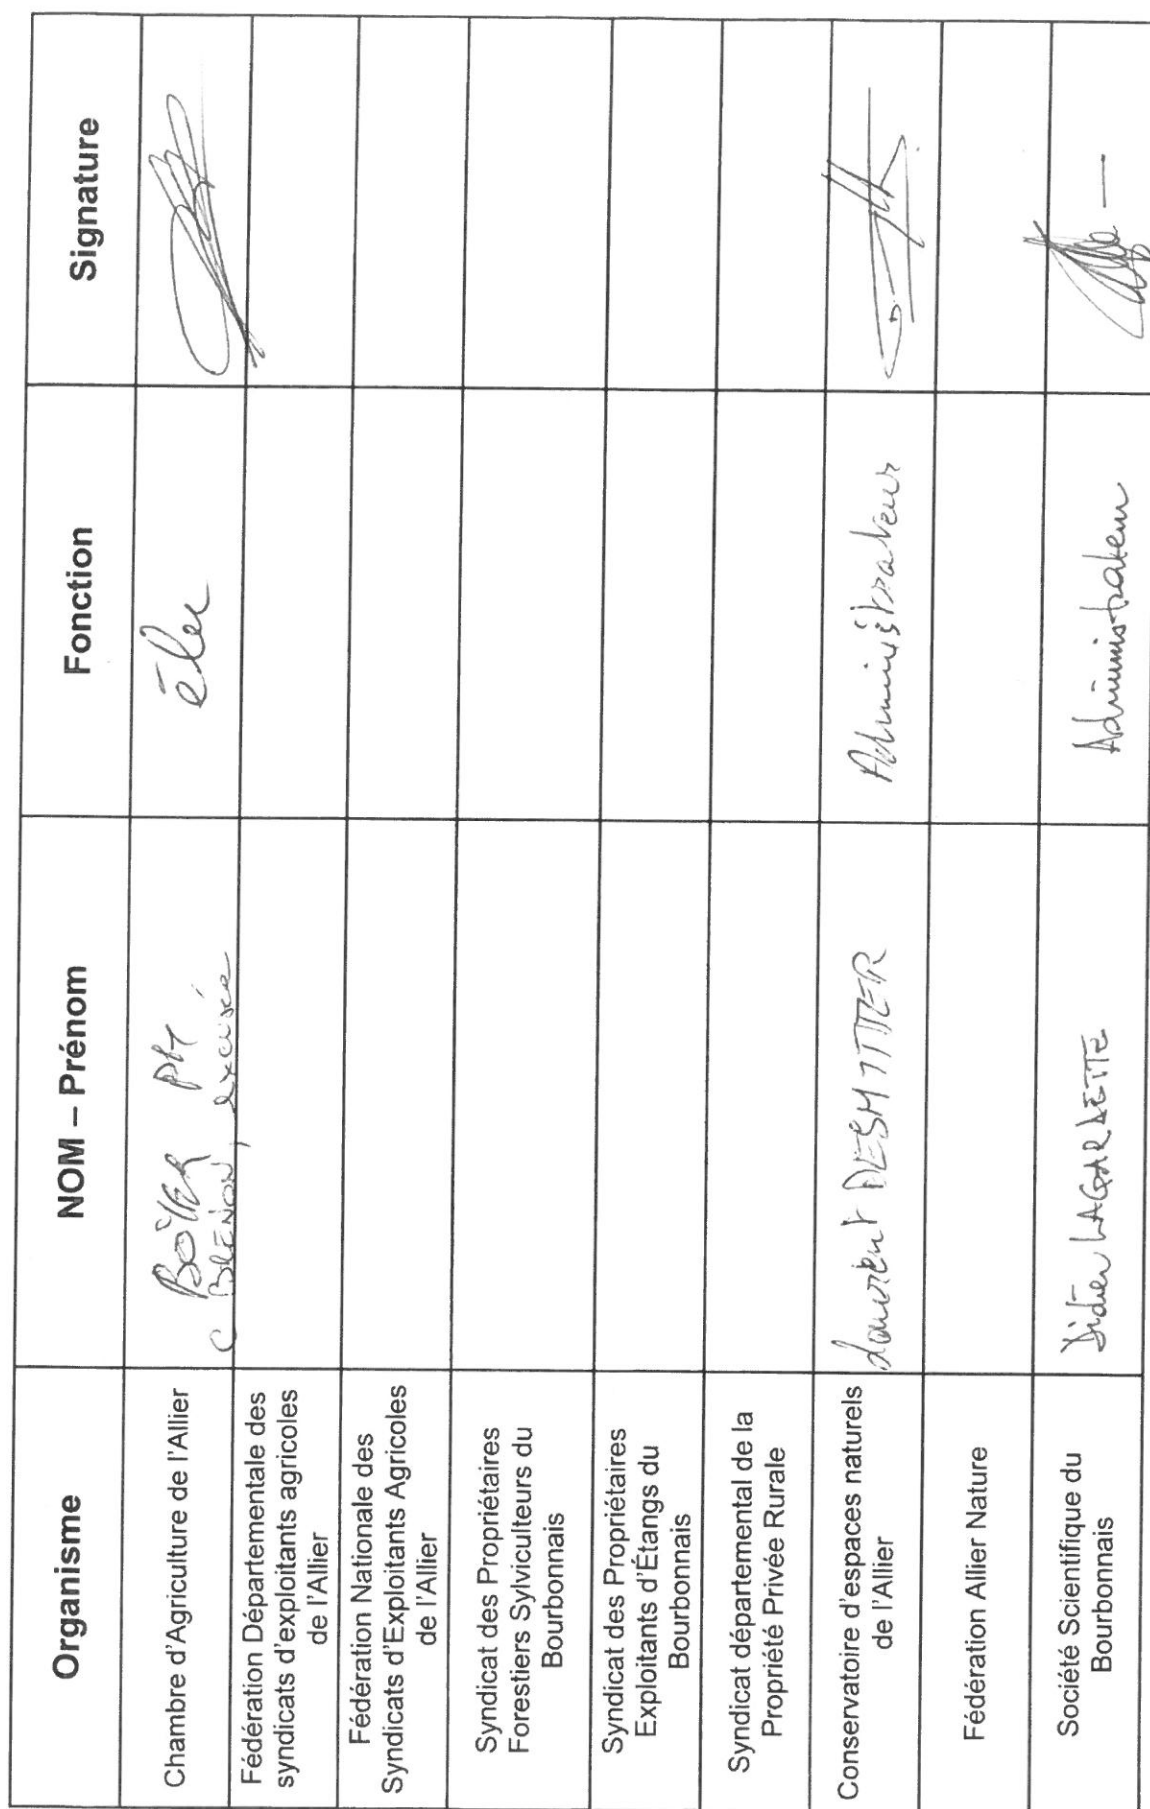 Organisme NOM – Prénom Fonction Signature
Chambre d'Agriculture de l'Allier
BOYER Ph
C BLÉNON, excusée
élu
Fédération Départementale des
syndicats d'exploitants agricoles
de l'Allier
Fédération Nationale des
Syndicats d'Exploitants Agricoles
de l'Allier
Syndicat des Propriétaires
Forestiers Sylviculteurs du
Bourbonnais
Syndicat des Propriétaires
Exploitants d'Étangs du
Bourbonnais
Syndicat départemental de la
Propriété Privée Rurale
Conservatoire d'espaces naturels
de l'Allier
Laurent DESMITTER
Administrateur
Fédération Allier Nature
Société Scientifique du
Bourbonnais
Didier LAGARDETTE
Administrateur